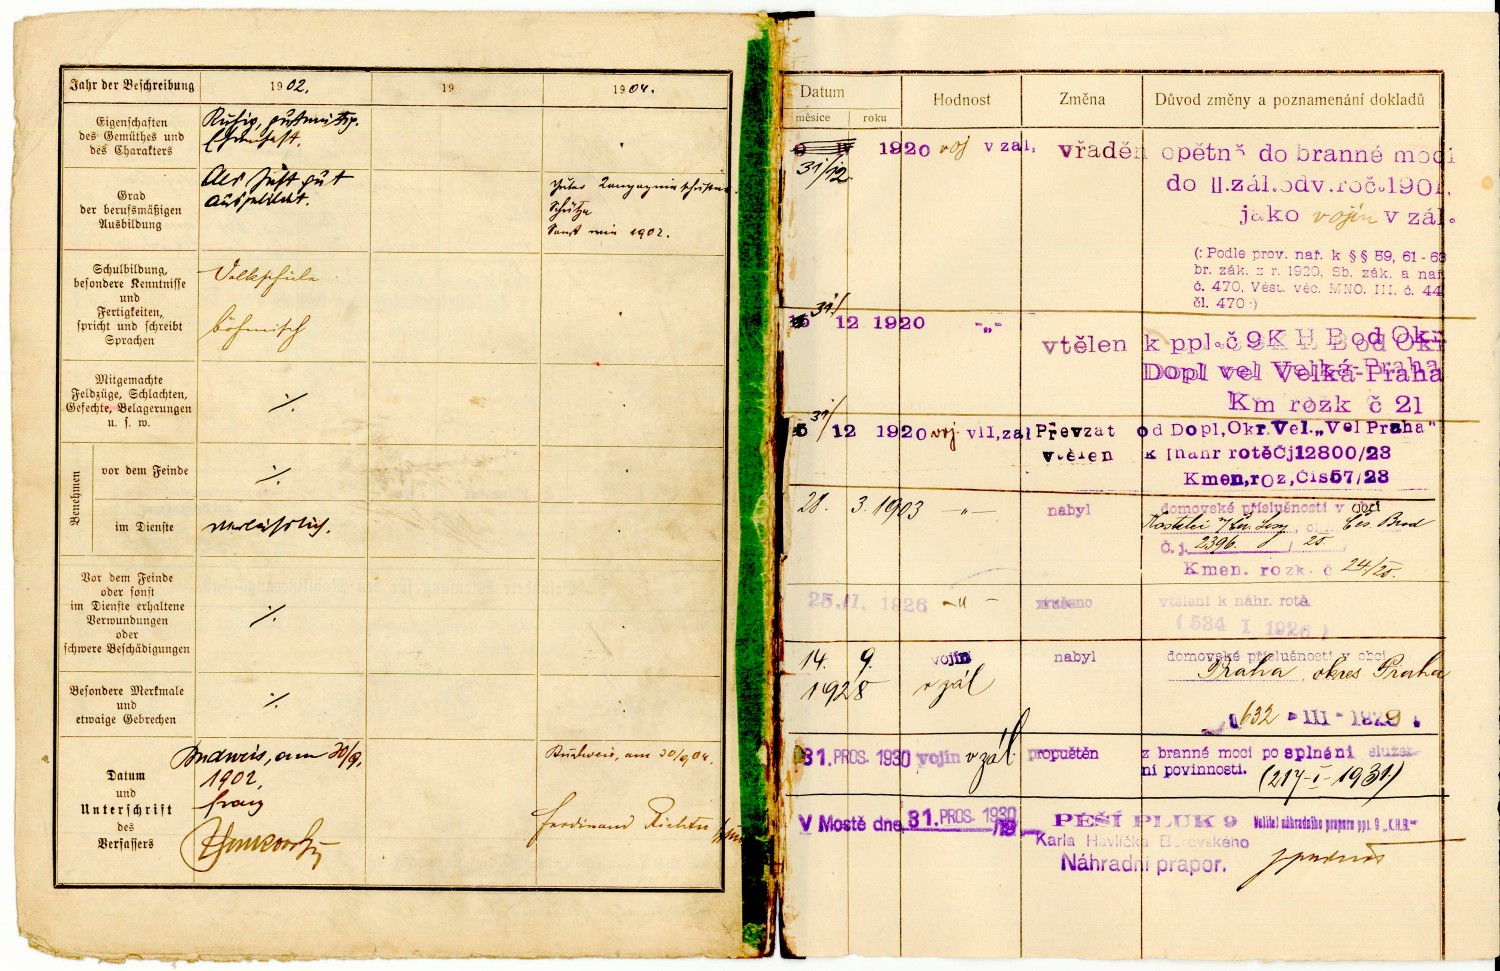 Jahr der Beschreibung 1902. 19 1904.
Eigenschaften
des Gemüthes und
des Charakters
Ruhig, gutmütig.
Ehrenhaft.
Grad
der berufsmäßigen
Ausbildung
Als Inft gut
ausgebildet.
Guter Kompagnieschießen.
Schütze
Sonst wie 1902.
Schulbildung,
besondere Kenntnisse
und
Fertigkeiten,
spricht und schreibt
Sprachen
Volksschule
böhmisch
Mitgemachte
Feldzüge, Schlachten,
Gefechte, Belagerungen
u. s. w.
./.
Benehmen
vor dem Feinde
./.
im Dienste
verlässlich.
Vor dem Feinde
oder sonst
im Dienste erhaltene
Verwundungen
oder
schwere Beschädigungen
./.
Besondere Merkmale
und
etwaige Gebrechen
./.
Datum
und
Unterschrift
des
Verfassers
Budweis, am 30/9.
1902.
Franz
Budweis, am 30/9 04.
Ferdinand Richter
Datum Hodnost Změna Důvod změny a poznamenání dokladů
měsíce roku
9 IV 1920 voj v zál. vřaděn opětně do branné moci
31/12.
do II.zál.odv.roč.1901.
jako vojín v zál.
(: Podle prov. nař. k § § 59, 61 - 63
br. zák. z r. 1920, Sb. zák. a nař.
č. 470, Věst. věc. MNO. III. č. 44
čl. 470 :)
31/ 12 1920 -„-
vtělen k ppl.č 9 K H B od Okr
Dopl vel Velká-Praha
Km rozk č 21
31/ 12 1920 voj. v II,zál Převzat od Dopl,Okr.Vel.„Vel Praha"
vtělen k náhr rotě Čj 12800/23
Kmen,roz,Čis 57/23
28. 3. 1903 -„- nabyl domovské příslušnosti v obci
Kostelci n/Čer. Lesy, ok. Čes. Brod
Č. j. 2396. / 25.
Kmen. rozk. č 24/25.
25. II. 1926 -„- zrušeno vtělení k náhr. rotě
(534 I 1926)
14. 9.
1928 vojín
v zál nabyl domovské příslušnosti v obci
Praha, okres Praha
632 - III - 1929
31. PROS. 1930 vojín v zál propuštěn z branné moci po splnění služeb
ní povinnosti. (217-I-1931)
V Mostě dne 31. PROS. 1930
/19
PĚŠÍ PLUK 9
Karla Havlíčka Borovského
Náhradní prapor.
Velitel náhradního praporu ppl. 9 „K.H.B."